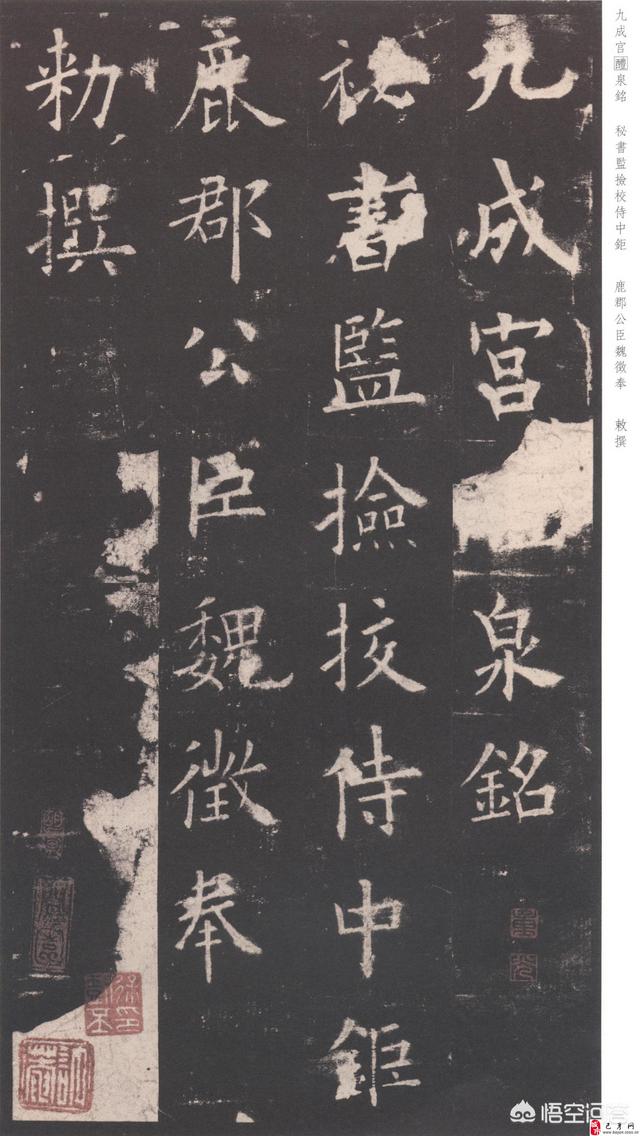 九成宫醴泉銘 秘書監撿校侍中鉅 鹿郡公臣魏徵奉 敕撰
九成宫泉銘
祕書監撿挍侍中鉅
鹿郡公臣魏徵奉
勑撰
悟空问答